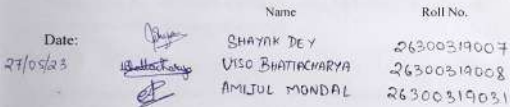 Name Roll No.
Date: SHAYAK DEY 26300319007
27/05/23 VISO BHATTACHARYA 26300319008
AMIJUL MONDAL 26300319031